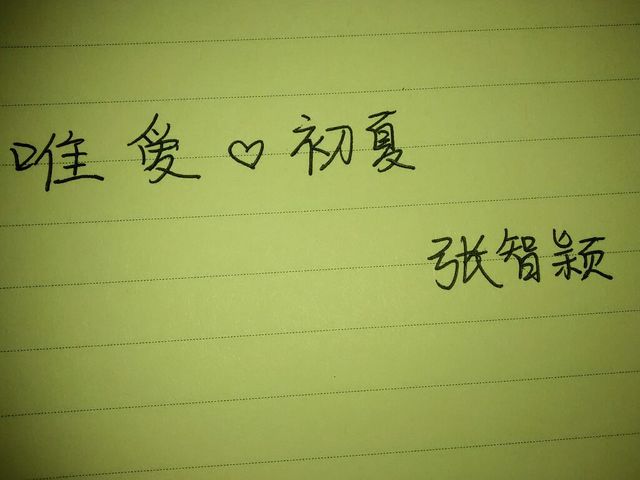 唯爱♡初夏
张智颖